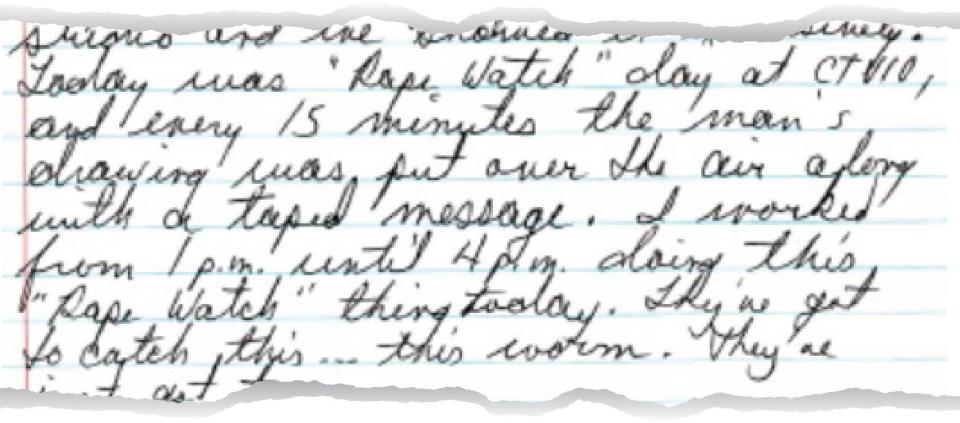 and
Today was "Rape Watch" day at CTV10,
and every 15 minutes the man's
drawing was put over the air along
with a taped message. I worked
from 1 p.m. until 4 p.m. doing this
"Rape Watch" thing today. They've got
to catch this... this worm. They've
got